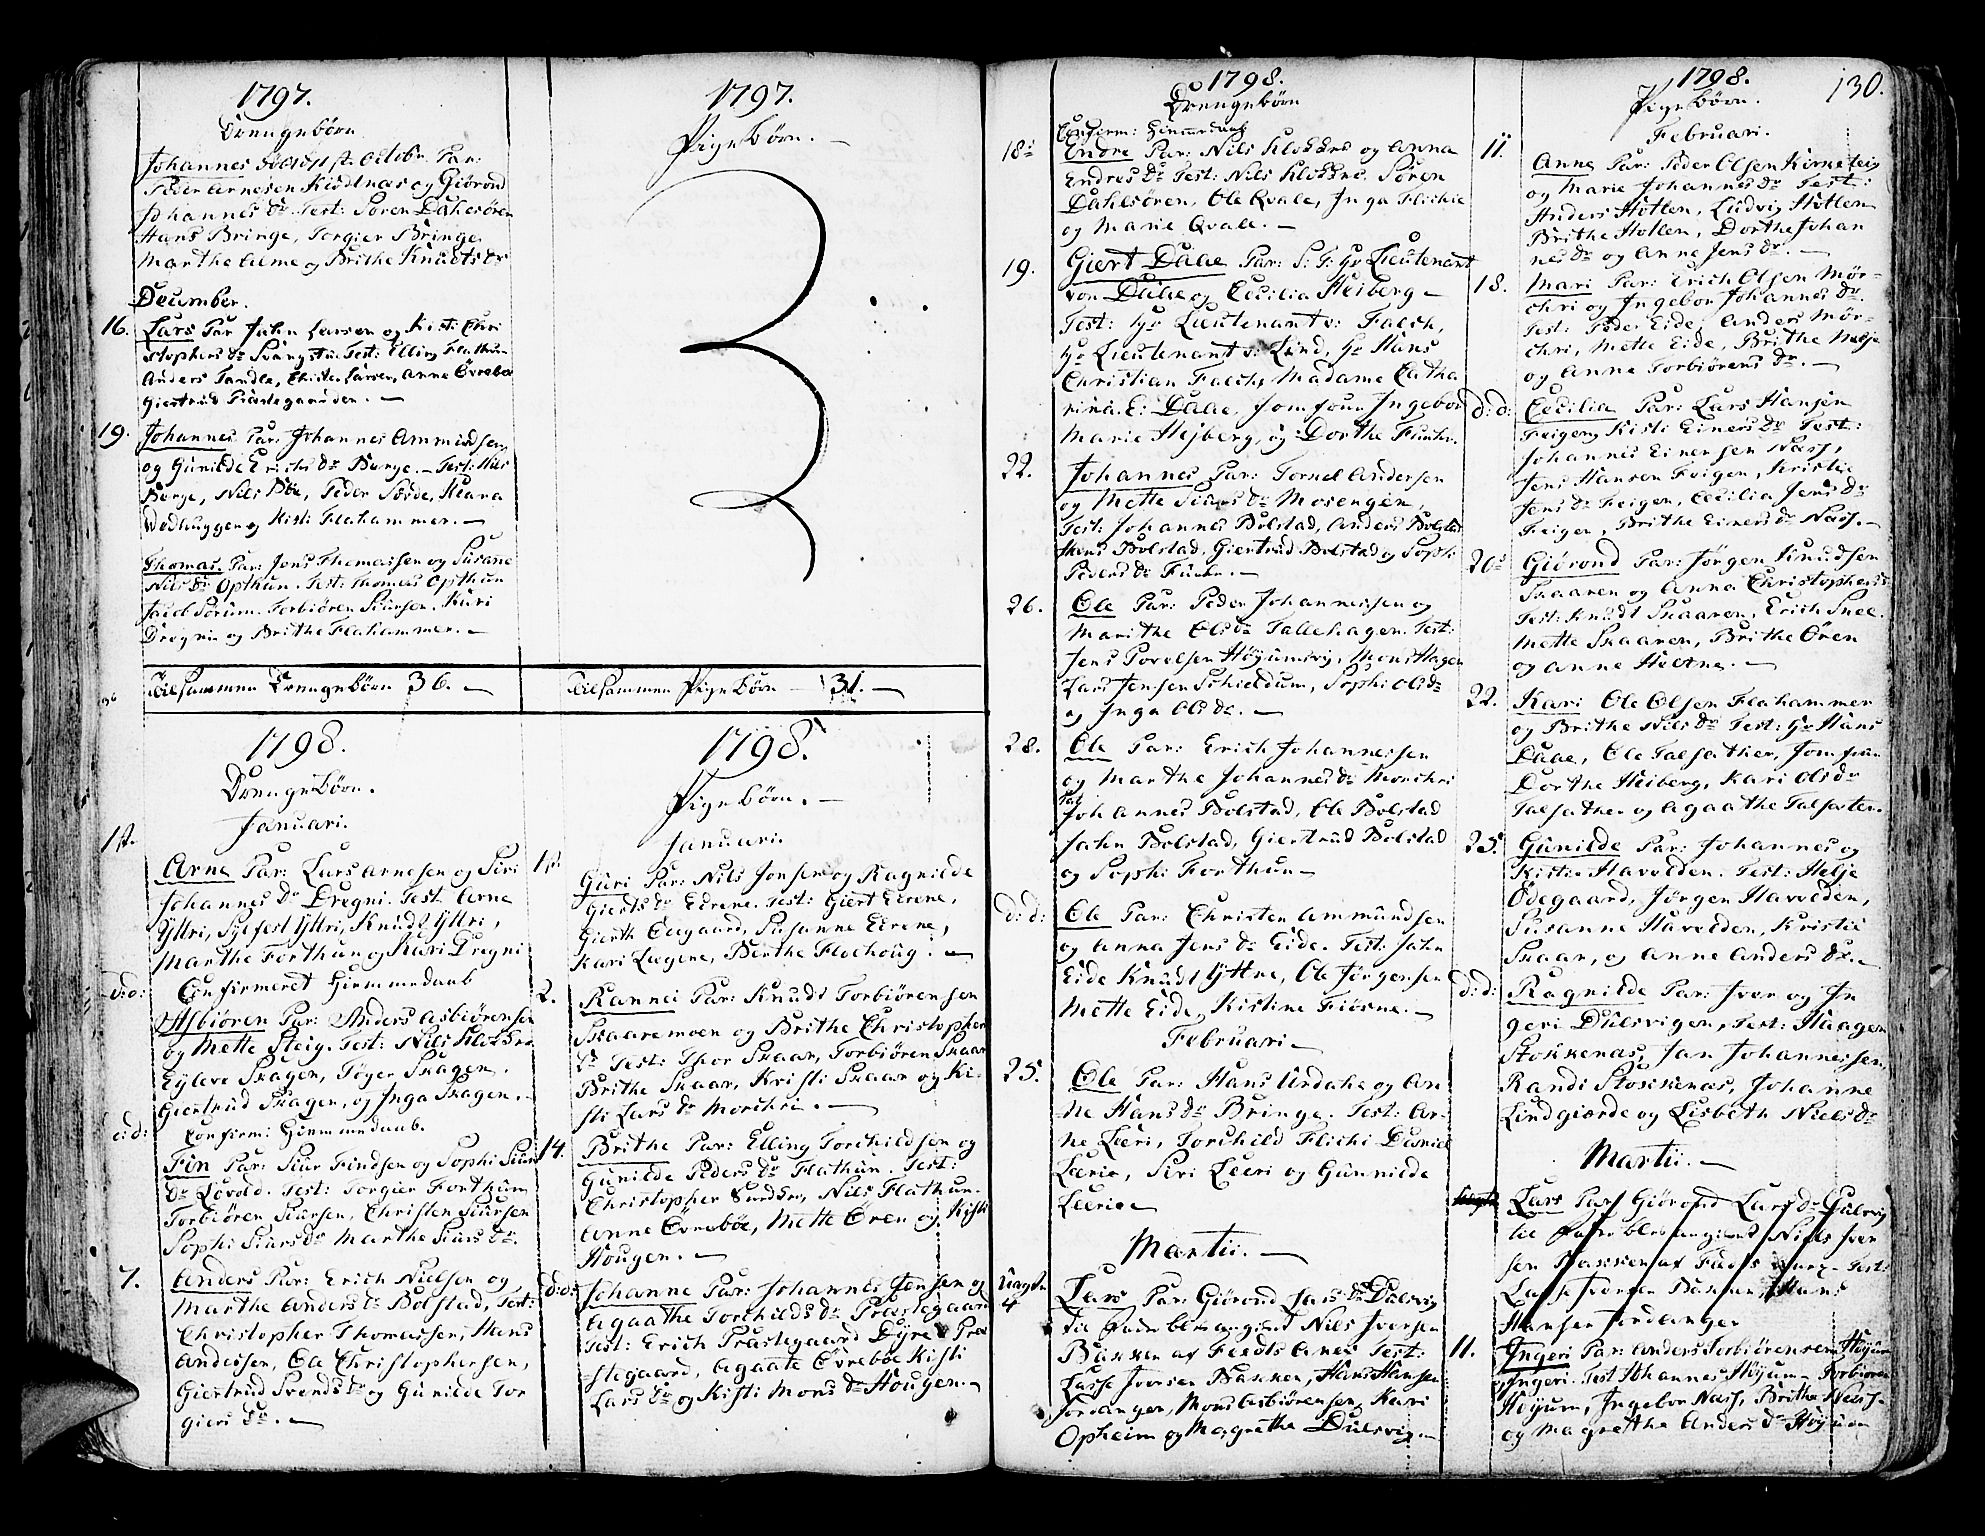 1797.
Drengebørn
Par:
Peder Arnesen Kiødnæs og Giørond
Johannes dr. Test: Søren Dahlsøren
Hans Bringe, Torgier Bringe
Marthe Alme og Brithe Knudts dr
December.
16. Lars Par John Larsen og Kisti Chri
stophers dr Test: Elling Flathun
Anders Tandle, Christen Larsen, Anne Øvrebøe
Giertrud Præstegaarden. —
19. Johannes Par: Johannes Ammundsen
og Gunilde Erichs dr Berge. — Test:
Berge, Nils Bøe, Peder Sørde,
og Kisti Flahammer. —
Thomas. Par: Jens Thomassen og Susanne
Nils dr Opthun. Test: Thomas Opthun
Jacob Sørum. Torbiøren Siursen. Kari
Dregni og Brithe Flahammer. —
Tilsammen Drengebørn 36. —
1797.
Pigebørn. —
Tilsammen Pigebørn — 31. —
1798.
Drengebørn.
Januari.
1st.
Arne Par: Lars Arnesen og Siri
Johannes dr Dregni. Test Arne
Yttri, Sylfest Yttri, Knudt Yttri,
Marthe Forthun og Kari Dregni
d: d: Confirmeret Hiemmedaab
Asbiøren Par: Anders Asbiørensen
og Mette Steig. Test: Nils Klokker
Eyleve Skagen, Tøger Skagen.
Giertrud Skagen, og Inga Skagen. —
d: d: Confirm: Hiemmedaab.
Fin Par: Siur Findsen og Sophi Siurs
dr Løvold. Test: Torgier Forthun
Torbiøren Siursen, Christen Siursen
Sophi Siurs dr Marthe Siurs dr.
7. Anders Par: Erich Nielsen og
Marthe Anders dr Bolstad, Test:
Christopher Thomassen, Hans
Andersen, Ole Christophersen,
Giertrud Svends dr og Gunilde Tor
giers dr. —
1798.
Pigebørn. —
Januari.
1st Guri Par: Nils Jonsen og Ragnilde
Gierts dr Eirene. Test: Giert Eirene,
Gierth Eegaard, Susanne Eirene,
Kari Leegene, Berthe Floehoug. —
2. Rannei Par: Knudt Torbiørensen
Skaaremoen og Brithe Christopher
dr Test: Thor Skaar, Torbiøren Skaar
Brithe Skaar, Kristi Skaar og Ki-
sti Lars dr Morchri. —
14. Brithe Par: Elling Torchildsen og
Gunilde Peders dr Flathun. Test:
Christopher Nils Flathun.
Anne Øvrebøe, Mette Øren og Kisti
Hougen. —
d: d: Johanne Par: Johannes Jensen og
Agaathe Torchilds dr Præstegaard
Test: Erich Præstegaard Dyre Præ
stegaard, Agaate Øvrebøe Kisti
Lars dr og Kisti Mons dr Hougen. —
1798.
Drengebørn
Confirm: Hiemmedaab
18: Endre Par: Nils Klokker og Anna
Endres dr Test: Nils Klokker. Søren
Dahlsøren, Ole Qvale, Inga Flichie
og Marie Qvale. —
19. Giert Daae Par: S: T: Hr Lieutenant
von Daae og Cecilia Heiberg —
Test: Hr Lieutenant v: Falch,
Hr Lieutenant v: Lind, Hr Hans
Christian Falch, Madame Catha
rina E: Daae, Jomfrue Ingebor
Marie Hejberg, og Dorthe
22. Johannes Par: Tomel Andersen
og Mette Siurs dr Mosengen,
Test: Johannes Bolstad, Anders Bolstad
Hans Bolstad, Giertrud Bolstad og Sophi
Peders dr —
26. Ole Par: Peder Johannessen og
Marithe Ols dr Tallehagen. Test:
Jens Povelsen Høyumsvig, Mons Hagen
Lars Jensen Schieldum, Sophi Ols dr
og Inga Ols dr. —
28. Ole Par: Erich Johannessen
og Marthe Johannes dr Morchri
Test Johannes Bolstad, Ole Bolstad
John Bolstad, Giertrud Bolstad
og Sophi Forthun —
d: d: Ole Par: Christen Ammundsen
og Anna Jens dr Eide. Test: John
Eide Knudt Yttre, Ole Jørgensen
Mette Eide, Kistine Fiøsne. —
Februari —
25. Ole Par: Hans Urdahl og An-
ne Hans dr Bringe. Test: Ar-
ne Leeri, Torchild Flichi Daniel
Leerie, Siri Leeri og Gunnilde
Leerie —
Martii. —
4 Lars Par: Giørond Lars dr Dulsvig
til Fader blev angivet Nils Iversen
Bakken af Test:
Lasse Iversen Bakken, Hans Hansen
Jordanger, Mons Asbiørensen, Kari
Opheim og Magrethe Dulsvig. —
1798. 130.
Pigebørn.
Februari.
11. Anne Par: Peder Olsen Kirneteig
og Marie Johannes dr Test:
Anders Hotlen, Ludvig Hotlen
Brithe Hotlen, Dorthe Johan
nes dr og Anne Jens dr. —
18. Mari Par: Erich Olsen Mør-
chri og Ingebor Johannes dr.
Test: Peder Eide, Anders Mør-
chri, Mette Eide, Brithe Melje
og Anne Torbiørens dr. —
d: d: Cecilia Par: Lars Hansen
Feigen Kisti Einers dr Test:
Johannes Einersen Næss,
Jens Hansen Feigen, Kristie
Jens dr Feigen, Cecilia Jens dr
Feigen, Brithe Einers dr Næss. —
20: Giørond Par: Jørgen Knudsen
Skaaren og Anna Christophers dr
Test: Knudt Skaaren, Erich Snee.
Mette Skaaren, Brithe Øren
og Anne Heltne. —
22. Kari Ole Olsen Flahammer
og Brithe Nils dr Test: Hr Hans
Daae, Ole Talsather, Jomfrue
Dorthe Heiberg, Kari Ols dr
Talsather og Agaathe Talsather.
25. Gunilde Par: Johannes og
Kistie Havelden. Test: Helje
Ødegaard, Jørgen Havelden,
Susanne Havelden, Kristie
Skaar, og Anne Anders dr. —
d: d: Ragnilde Par: Iver og In
geri Dulsvigen, Test: Haagen
Stokkenæs, Jan Johannessen,
Randi Stokkenæs, Johanne
Lindgiærde og Lisbeth Niels dr
Martii. —
Lars Par Giørond Lars dr Dulsvig
til Fader blev angivet Niels Iver
sen Bakken af Test:
Lasse Iversen Bakken, Hans
Hansen Jordanger
11. Ingeri Par: Anders Torbiørensen Høyum
og Ingeri. Test Johannes Høyum Torbiøren
Høyum, Ingebor Næss, Brithe Næss.
og Magrethe Anders dr Høyum